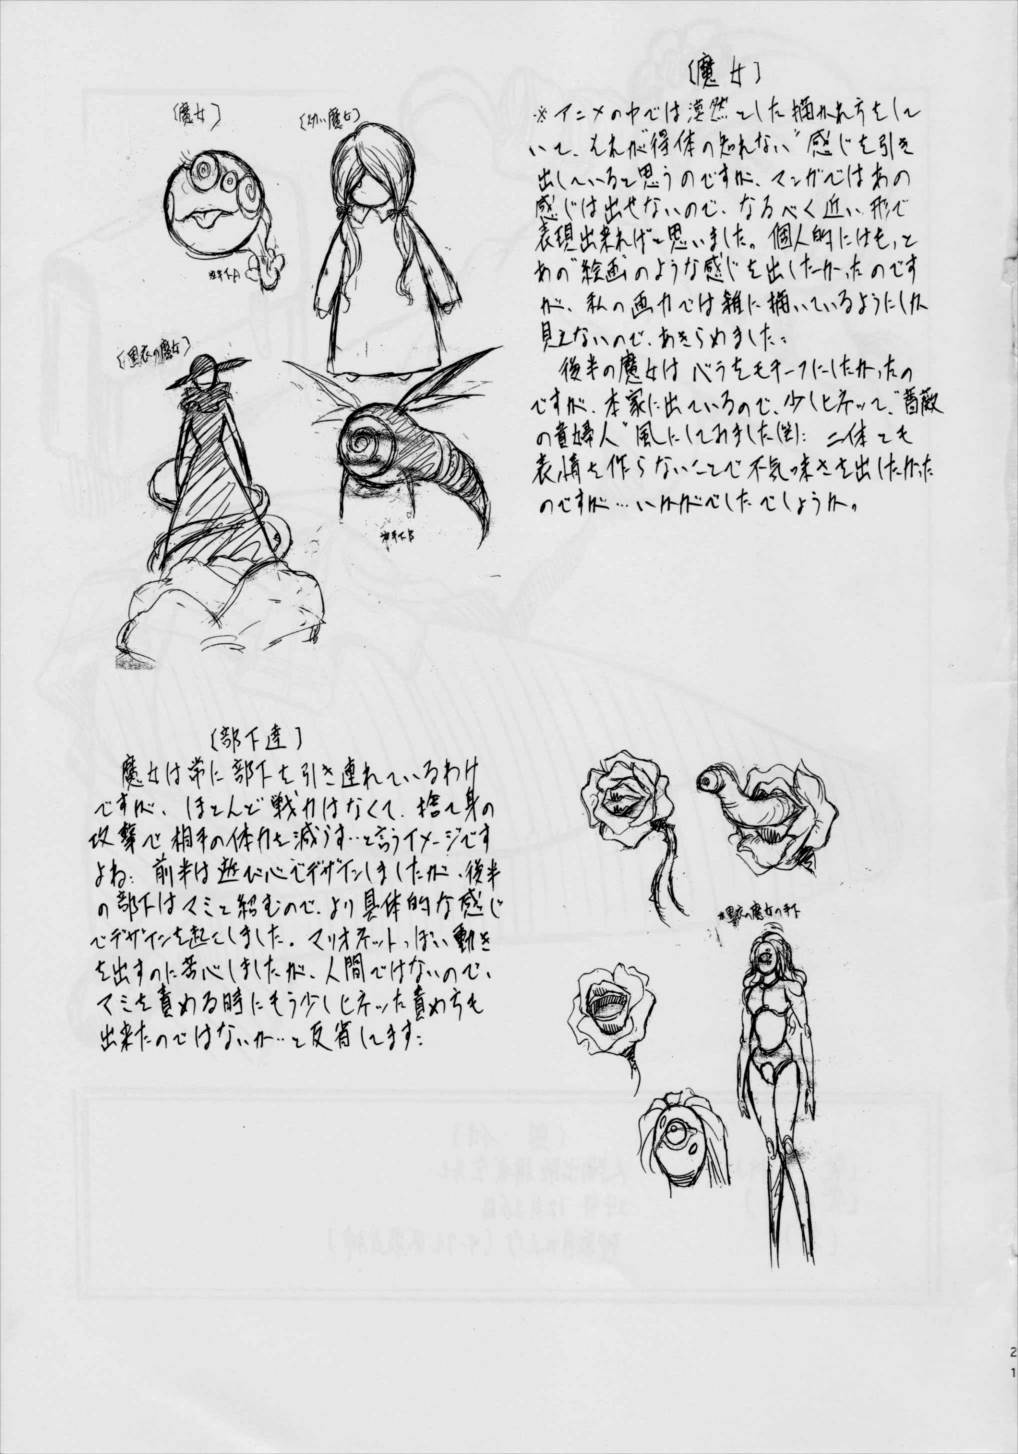 〔魔女〕
※アニメの中では漠然とした描かれ方をして
いて、それが“得体の知れない”感じを引き
出していると思うのですが、マンガではあの
感じは出せないので、なるべく近い形で
表現出来ればと思いました。個人的にはもっと
あの“絵画”のような感じを出したかったのです
が、私の画力では雑に描いているようにしか
見えないので、あきらめました;
後半の魔女はベラをモチーフにしたかったの
ですが、本家に出ているので、少しヒネって、“薔薇
の貴婦人”風にしてみました(笑); 二体とも
表情を作らないことで不気味さを出したかった
のですが…いかがでしたでしょうか。
〔魔女〕
〔幼い魔女〕
〔黒衣の魔女〕
〔部下達〕
魔女は常に部下を引き連れているわけ
ですが、ほとんど戦力はなくて、捨て身の
攻撃で相手の体力を減らす…と言うイメージです
よね; 前半は遊び心でデザインしましたが、後半
の部下はマミと絡むので、より具体的な感じ
でデザインを起こしました。マリオネットっぽい動き
を出すのに苦心しましたが、人間ではないので、
マミを責める時にもう少しヒネった責め方も
出来たのではないか…と反省してます;
黒衣の魔女の手下
21